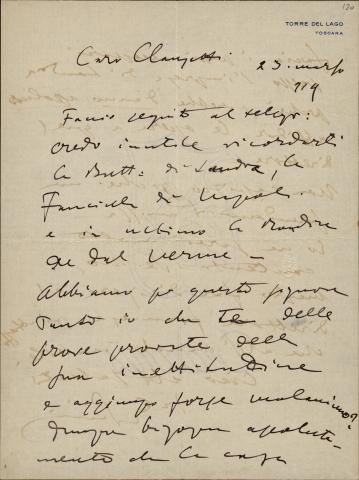 120
TORRE DEL LAGO
TOSCANA
Caro Clausetti
23. marzo
919
Faccio seguito al telegr:
credo inutile ricordarti
la Butt: di Londra, la
Fanciulla di Napoli
e in ultimo la Rondine
al dal Verme –
Abbiamo per questo signore
tanto io che te delle
prove provate della
sua inettitudine
e aggiungo forse malanimo?
Dunque bisogna assoluta-
mente che la casa